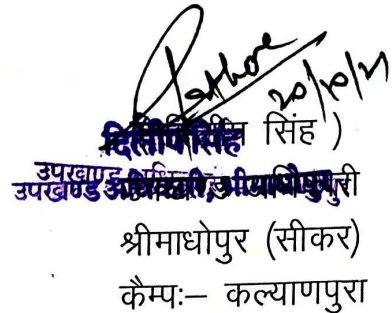 Rathore
20/10/21
दिलीप सिंह सिंह )
उपखण्ड
उपखण्ड अधिकारी, श्रीमाधोपुर
श्रीमाधोपुर (सीकर)
कैम्पः– कल्याणपुरा